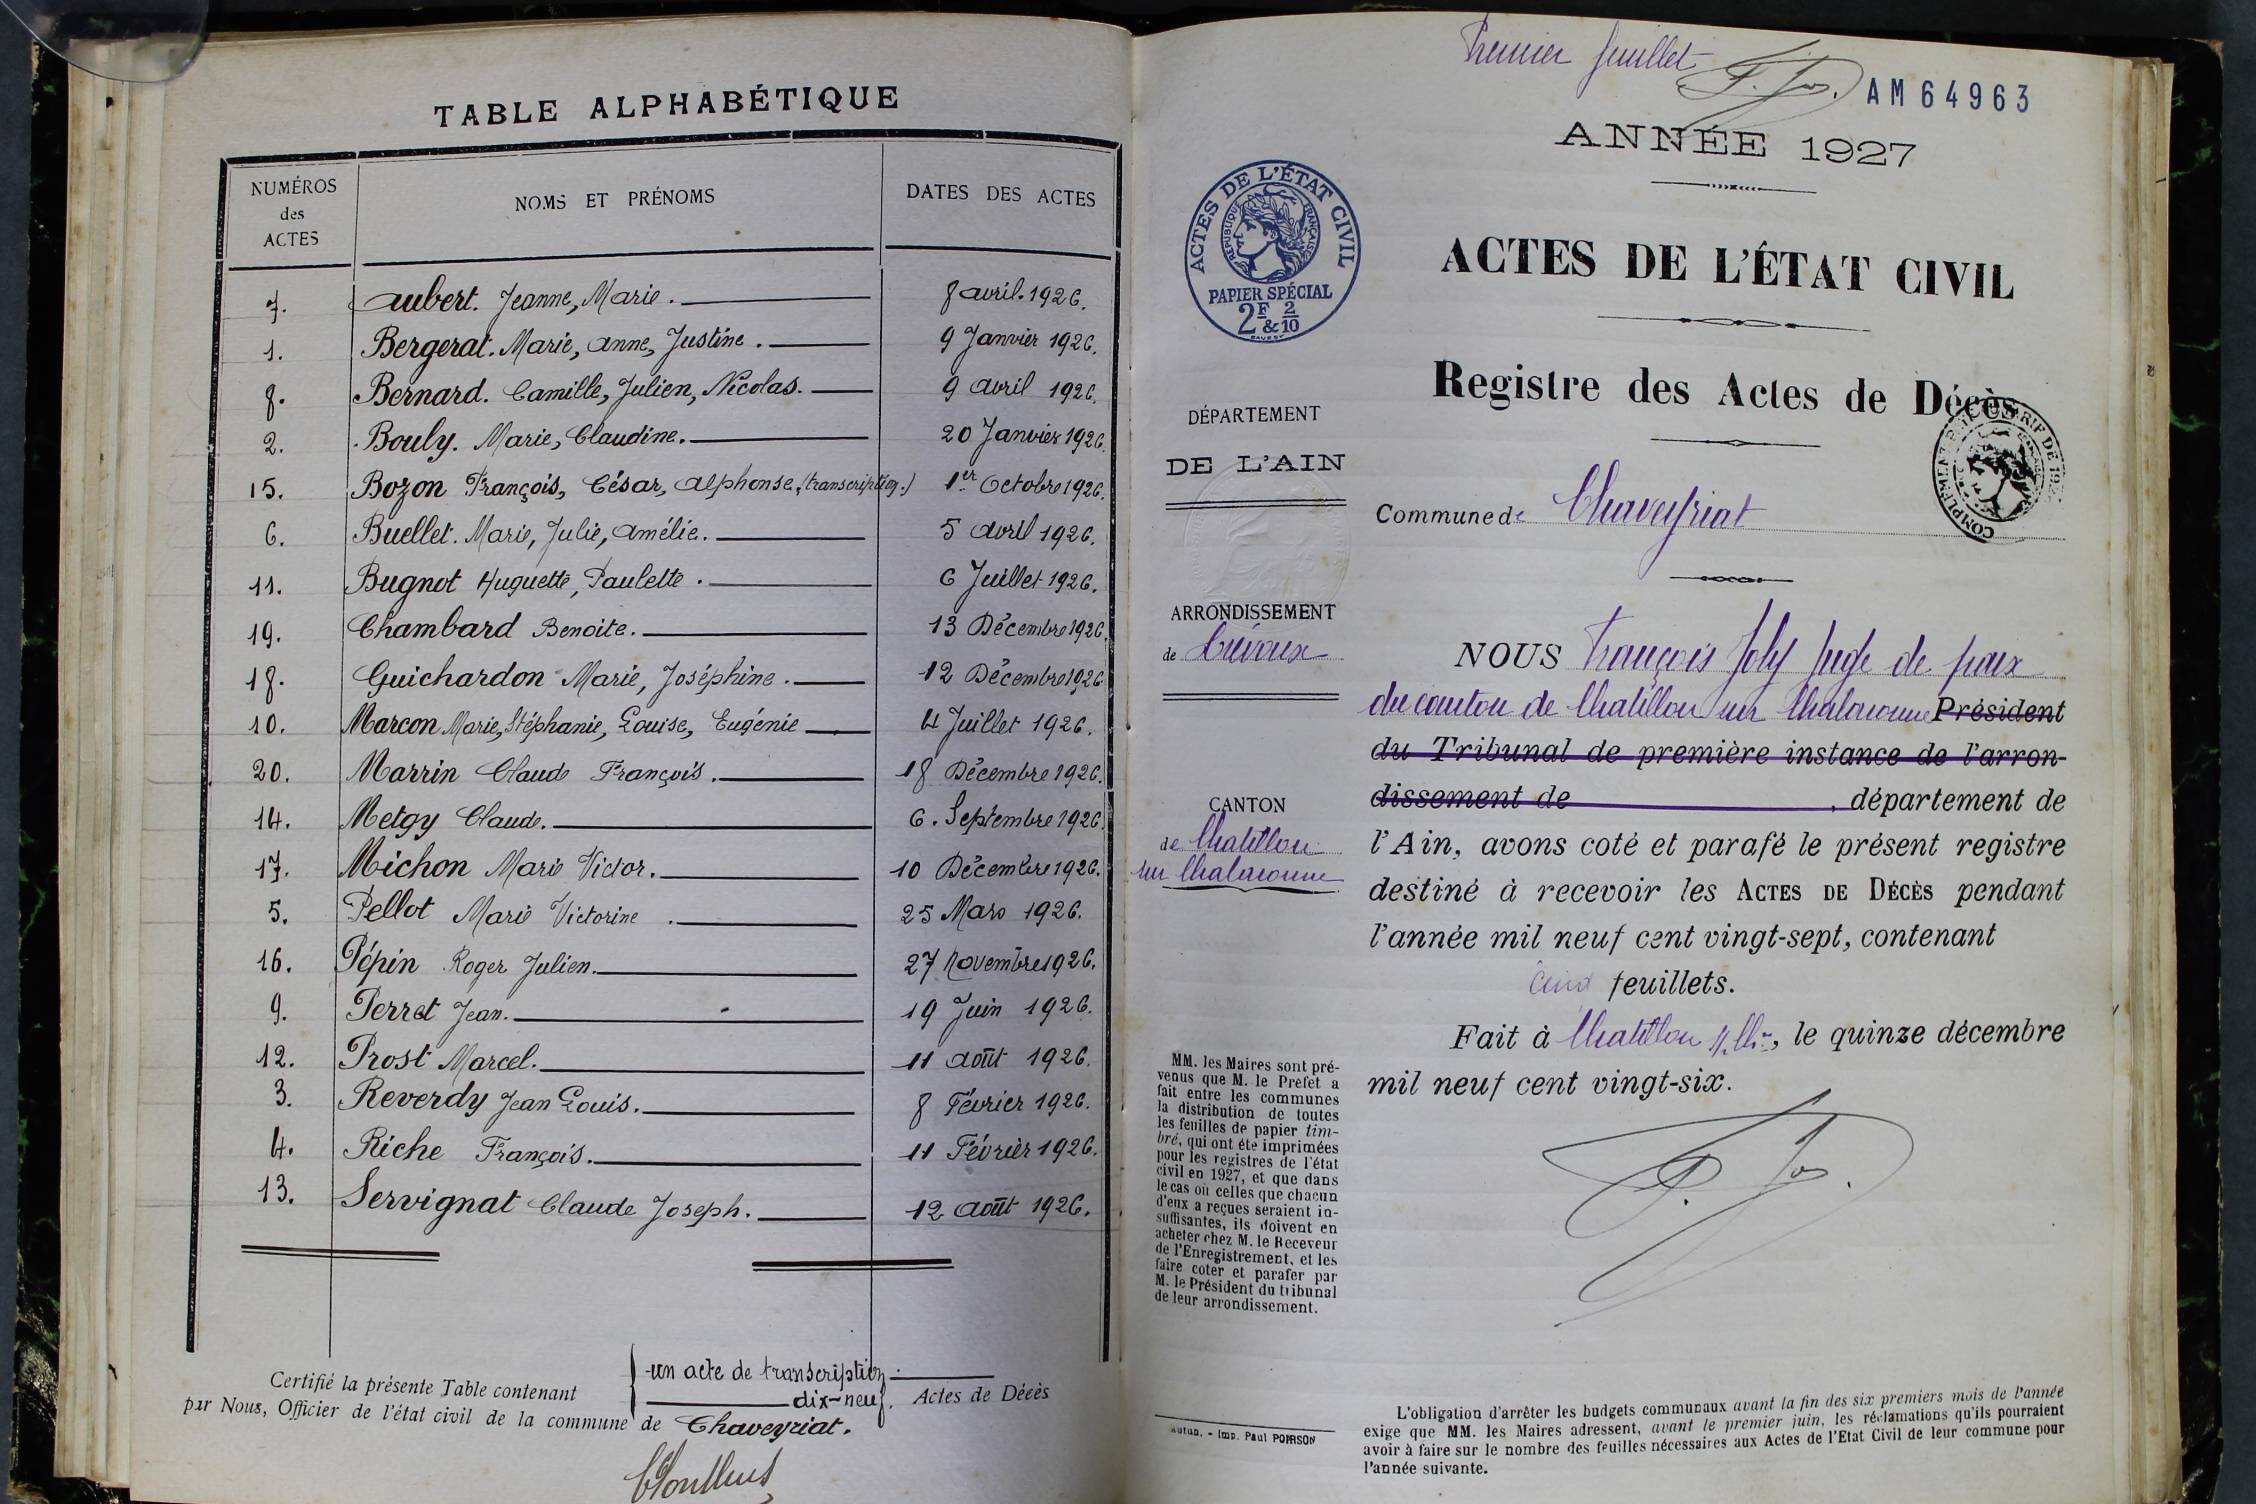 TABLE ALPHABÉTIQUE
NUMÉROS des ACTES NOMS ET PRÉNOMS DATES DES ACTES
7. Aubert. Jeanne, Marie. 8 avril. 1926.
1. Bergerat. Marie, Anne, Justine. 9 Janvier 1926.
8. Bernard. Camille, Julien, Nicolas. 9 avril 1926.
2. Bouly. Marie, Claudine. 20 Janvier 1926.
15. Bozon François, César, Alphonse, (transcription.) 1er Octobre 1926.
6. Buellet. Marie, Julie, Amélie. 5 avril 1926.
11. Bugnot Huguette, Paulette. 6 Juillet 1926.
19. Chambard Benoite. 13 Décembre 1926.
18. Guichardon Marie, Joséphine. 12 Décembre 1926
10. Marcon Marie, Stéphanie, Louise, Eugénie 4 Juillet 1926.
20. Marrin Claude François. 18 Décembre 1926.
14. Metgy Claude. 6. Septembre 1926.
17. Michon Marie Victor. 10 Décembre 1926.
5. Pellot Marie Victorine. 25 Mars 1926.
16. Pépin Roger Julien. 27 Novembre 1926.
9. Perret Jean. 19 Juin 1926.
12. Prost Marcel. 11 août 1926.
3. Reverdy Jean Louis. 8 Février 1926.
4. Riche François. 11 Février 1926.
13. Servignat Claude Joseph. 12 août 1926.
un acte de transcription.
Certifié la présente Table contenant dix-neuf. Actes de Décès
par Nous, Officier de l'état civil de la commune de Chaveyriat.
Premier feuillet
AM 64963
ANNÉE 1927
ACTES DE L'ÉTAT CIVIL
RÉPUBLIQUE FRANÇAISE
PAPIER SPÉCIAL
2F & 2/10
ACTES DE L'ÉTAT CIVIL
Registre des Actes de Décès
DÉPARTEMENT
DE L'AIN
Commune de Chaveyriat
ARRONDISSEMENT
de Trévoux
CANTON
de Chatillon
sur Chalaronne
NOUS François Joly Juge de paix
du canton de Chatillon sur Chalaronne Président
du Tribunal de première instance de l'arron-
dissement de , département de
l'Ain, avons coté et parafé le présent registre
destiné à recevoir les ACTES DE DÉCÈS pendant
l'année mil neuf cent vingt-sept, contenant
cinq feuillets.
Fait à Chatillon s. Ch.ne, le quinze décembre
mil neuf cent vingt-six.
MM. les Maires sont pré-
venus que M. le Prefet a
fait entre les communes
la distribution de toutes
les feuilles de papier tim-
bré, qui ont été imprimées
pour les registres de l'état
civil en 1927, et que dans
le cas où celles que chacun
d'eux a reçues seraient in-
suffisantes, ils doivent en
acheter chez M. le Receveur
de l'Enregistrement, et les
faire coter et parafer par
M. le Président du tribunal
de leur arrondissement.
Autun. - Imp. Paul POIRSON
L'obligation d'arrêter les budgets communaux avant la fin des six premiers mois de l'année
exige que MM. les Maires adressent, avant le premier juin, les réclamations qu'ils pourraient
avoir à faire sur le nombre des feuilles nécessaires aux Actes de l'Etat Civil de leur commune pour
l'année suivante.